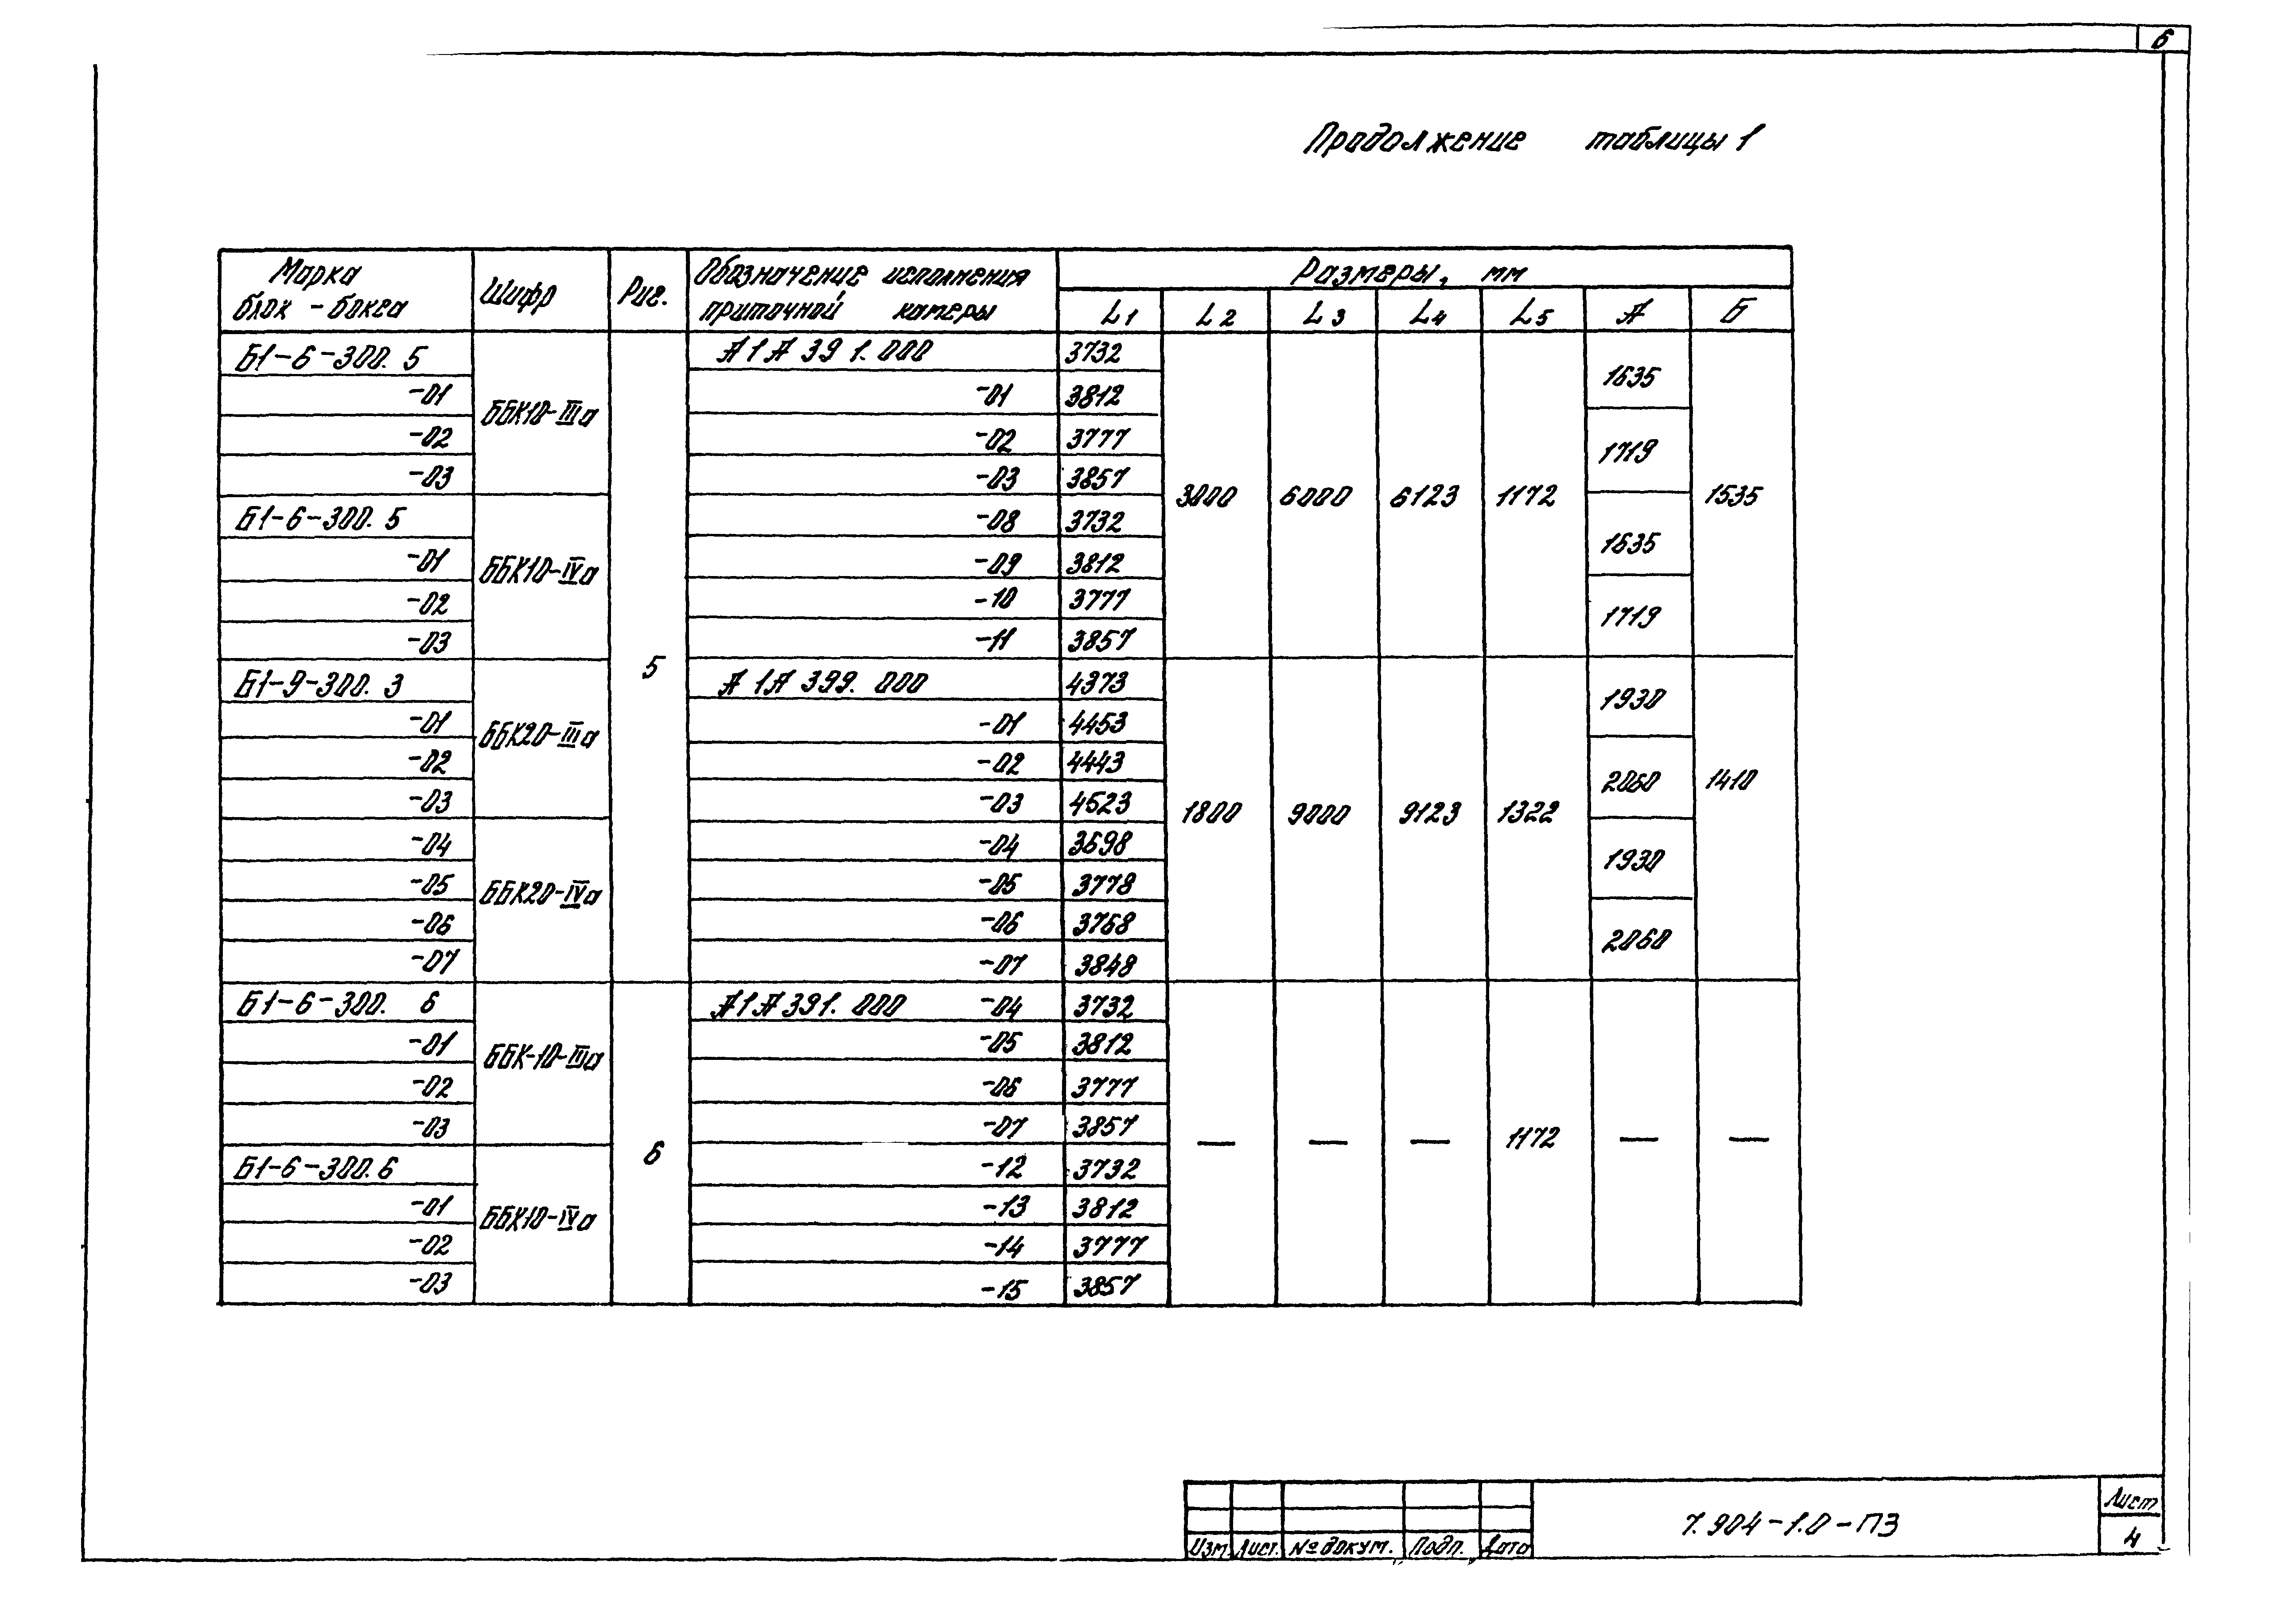 6
Продолжение таблицы 1
Марка блок-бокса Шифр Рис. Обозначение исполнения приточной камеры Размеры, мм
L1 L2 L3 L4 L5 А Б
Б1-6-300.5 ББК10-IIIа 5 А1А 391.000 3732 3000 6000 6123 1172 1635 1535
-01 -01 3812
-02 -02 3777 1719
-03 -03 3857
Б1-6-300.5 ББК10-IVа -08 3732 1635
-01 -09 3812
-02 -10 3777 1719
-03 -11 3857
Б1-9-300.3 ББК20-IIIа А1А 399.000 4373 1800 9000 9123 1322 1930 1410
-01 -01 4453
-02 -02 4443 2060
-03 -03 4523
-04 ББК20-IVа -04 3698 1930
-05 -05 3778
-06 -06 3768 2060
-07 -07 3848
Б1-6-300.6 ББК-10-IIIа 6 А1А 391.000 -04 3732 — — — 1172 — —
-01 -05 3812
-02 -06 3777
-03 -07 3857
Б1-6-300.6 ББК10-IVа -12 3732
-01 -13 3812
-02 -14 3777
-03 -15 3857
7.904-1.0-ПЗ
Лист
4
Изм. Лист. № докум. Подп. Дата